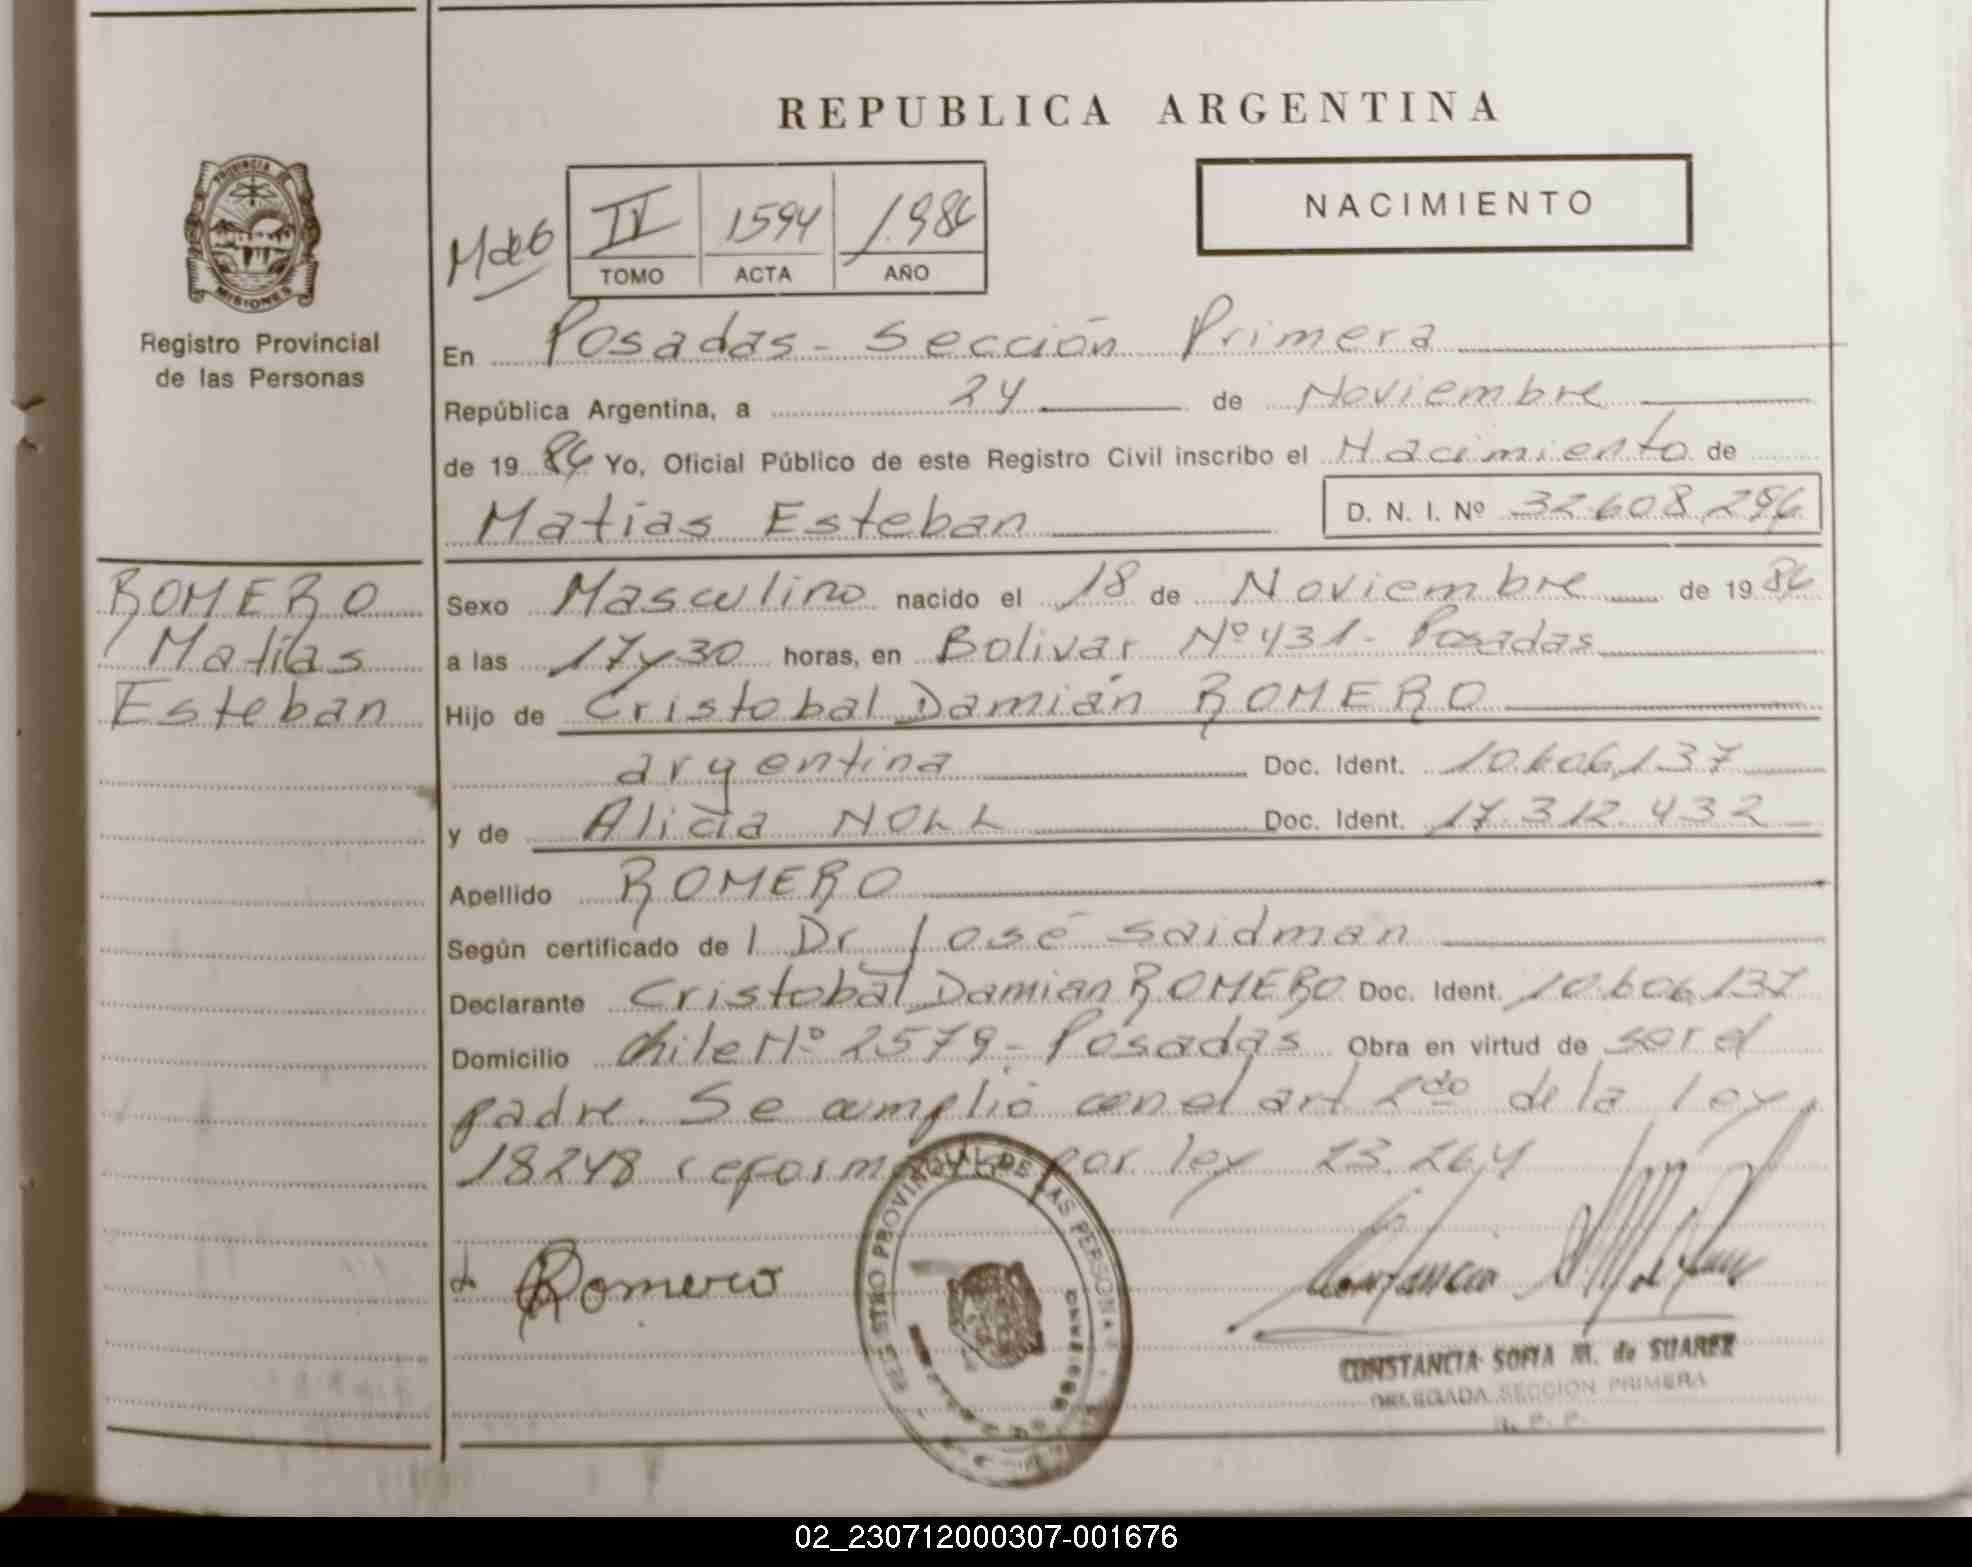 REPUBLICA ARGENTINA
PROVINCIA DE
MISIONES
Registro Provincial
de las Personas
NACIMIENTO
IV 1594 1.986
TOMO ACTA AÑO
En Posadas - Sección Primera
República Argentina, a 24 de Noviembre
de 19 86 Yo, Oficial Público de este Registro Civil inscribo el Nacimiento de
Matias Esteban D. N. I. Nº 32.608.296
ROMERO
Matías
Esteban
Sexo Masculino nacido el 18 de Noviembre de 19 86
a las 17 y 30 horas, en Bolivar Nº 431 - Posadas
Hijo de Cristobal Damián ROMERO
argentina Doc. Ident. 10.606.137
y de Alicia NOLL Doc. Ident. 17.312.432
Apellido ROMERO
Según certificado de l Dr José Saidman
Declarante Cristobal Damian ROMERO Doc. Ident. 10.606.137
Domicilio Chile Nº 2579 - Posadas Obra en virtud de ser el
padre. Se cumplió con el art 2do de la ley
18248 por ley 23.264
Romero
REGISTRO PROVINCIAL DE LAS PERSONAS
CONSTANCIA SOFIA M. de SUAREZ
DELEGADA SECCION PRIMERA
R. P. P.
02_230712000307-001676